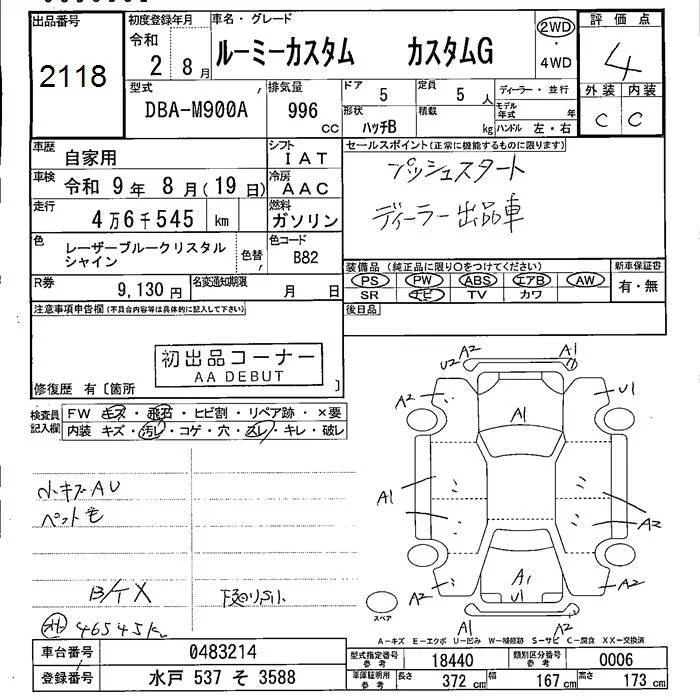 出品番号
2118
初度登録年月
令和
2 8月
車名・グレード
ルーミーカスタム カスタムG
2WD
・
4WD
評価点
4
外装 内装
C C
型式
DBA-M900A
排気量
996
cc
ドア
5
定員
5 人
ディーラー・並行
モデル年式 年
形状
ハッチB
積載
kg
ハンドル 左・右
車歴
自家用
シフト
IAT
セールスポイント(正常に機能するものに限ります)
プッシュスタート
ディーラー出品車
車検
令和 9年 8月(19日)
冷房
AAC
走行
4万6千545 km
燃料
ガソリン
色
レーザーブルークリスタル
シャイン
色替
色コード
B82
装備品(純正品に限り○をつけてください)
PS PW ABS エアB AW
SR ナビ TV カワ
新車保証書
有・無
R券
9,130円
名変通知期限
月 日
後日品
注意事項申告欄(不具合内容等は具体的に記入して下さい)
初出品コーナー
AA DEBUT
修復歴 有〔箇所 〕
検査員
記入欄
FW キズ・飛石・ヒビ割・リペア跡・×要
内装 キズ・汚レ・コゲ・穴・スレ・キレ・破レ
小キズAU
ペット毛
下廻りサビ
46545K
U2 A2 A1
A2 A1 U1
A1 A2
A2 A1 U1 A2
A1 A2
スペア
A-キズ E-エクボ U-凹み W-補修跡 S-サビ C-腐食 XX-交換済
車台番号
0483214
登録番号
水戸 537 そ 3588
型式指定番号
参考
18440
類別区分番号
参考
0006
車庫証明用
参考
長さ
372 cm
幅
167 cm
高さ
173 cm